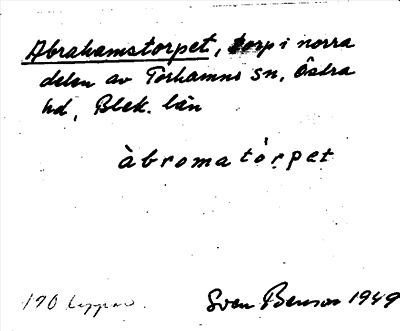 Abrahamstorpet, torp i norra
delen av Torhamns sn, Östra
hd, Blek. län
àbromatórpet
170
Sven Benson 1949